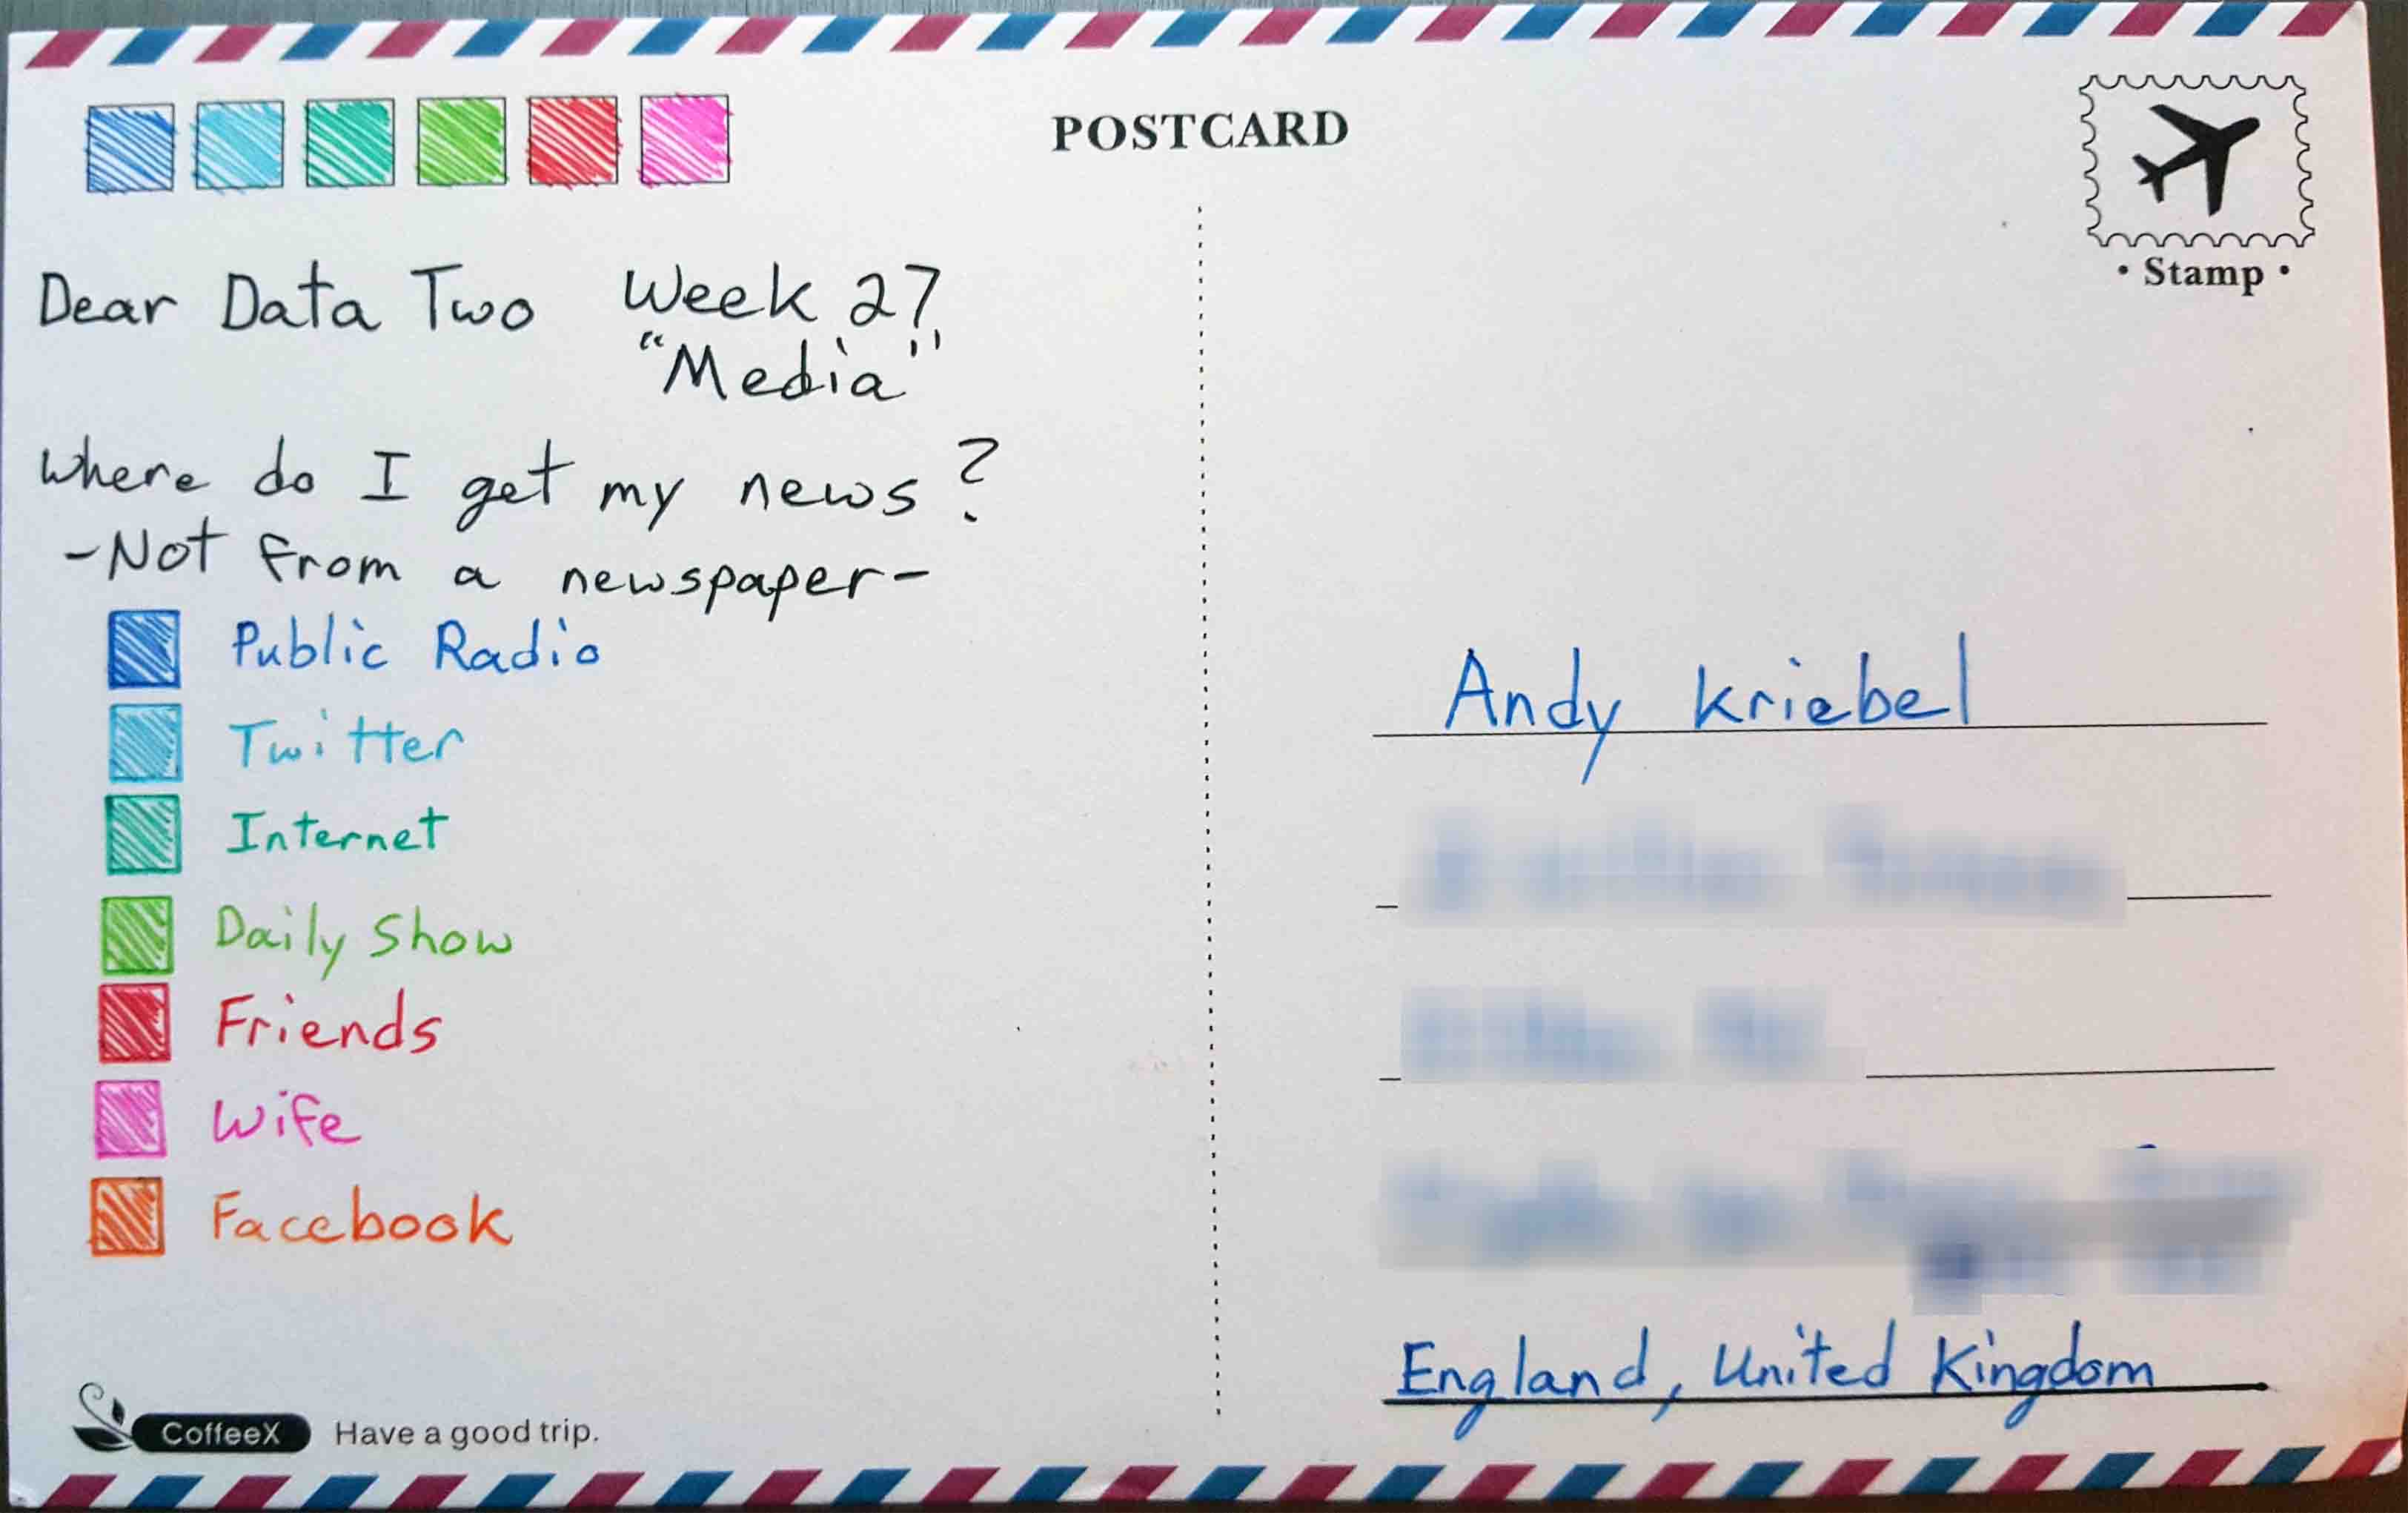 POSTCARD
• Stamp •
Dear Data Two Week 27
"Media"
Where do I get my news?
-Not from a newspaper-
Public Radio
Twitter
Internet
Daily Show
Friends
Wife
Facebook
CoffeeX Have a good trip.
Andy Kriebel
England, United Kingdom